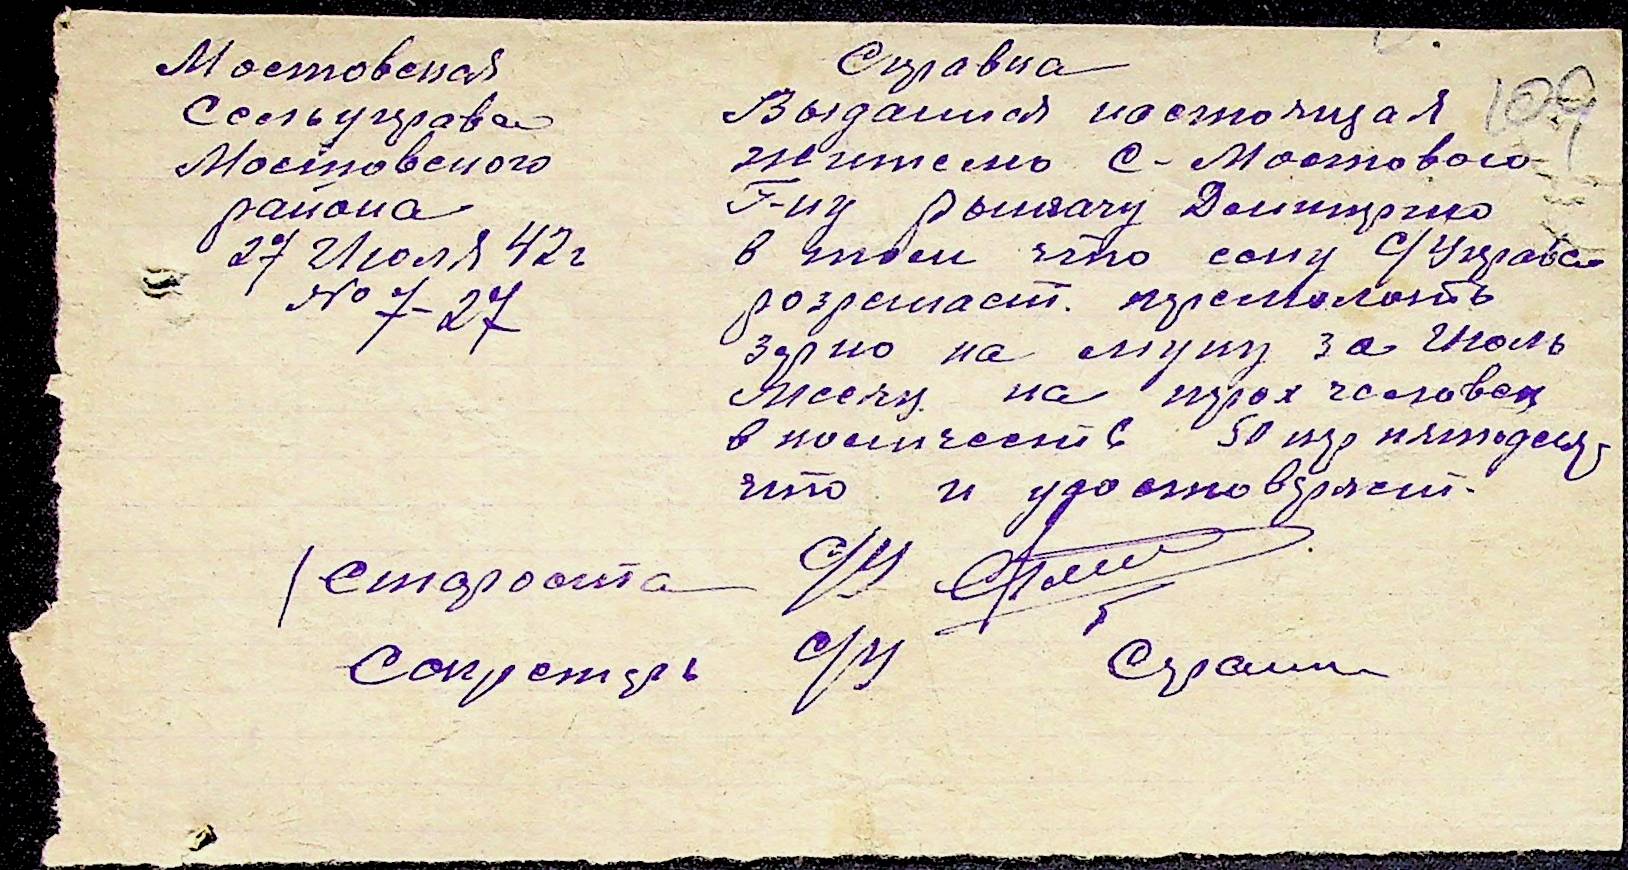 Мостовская
Сельуправа
Мостовского
района
27 Июля 42г
№ 7-27
109
Справка
Выдання настоящая
жителю С-Мостового
Г-ну Рыкачу Дмитрию
в том что ему С/Управа
розрешает. премолоть
зерно на муку за Июль
месяц на трох человек
в количеств 50 кгр пятьдеся
что и удостоверяет.
Староста С/У
Сакретарь С/У